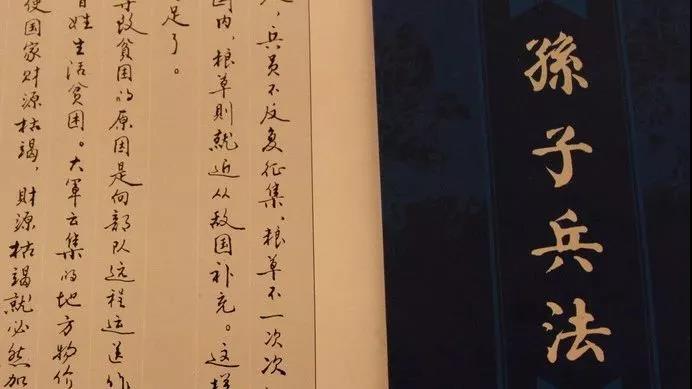 孫子兵法
人，兵员不反复征集，粮草不一次次
国内，粮草则就近从敌国补充。这样
足了。
导致贫困的原因是向部队远程运送作
百姓生活贫困。大军云集的地方物价
使国家财源枯竭，财源枯竭就必然加